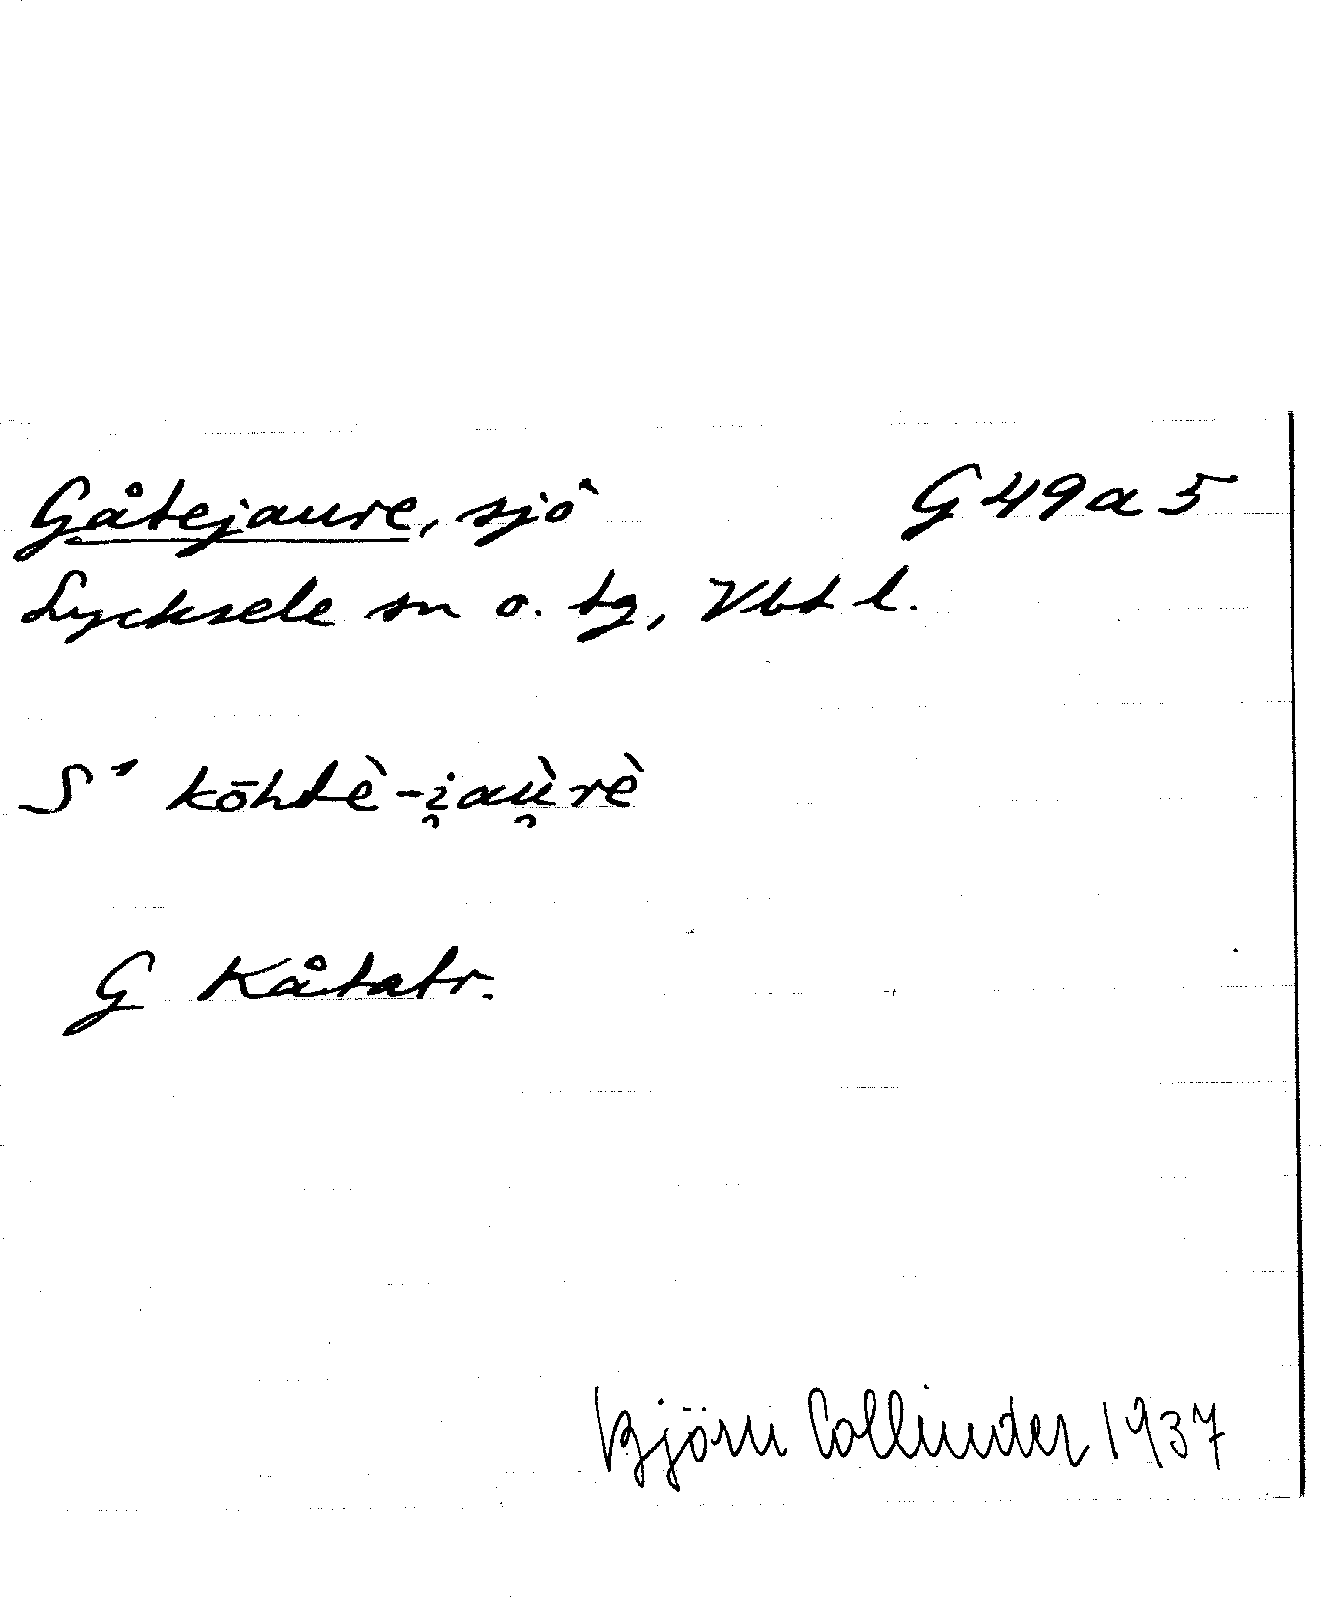 Gåtejaure, sjö G49a5
Lycksele sn o. tg, Vbt l.
S° kōhtè-i̯aù̯rè
G Kåtatr.
Björn Collinder 1937